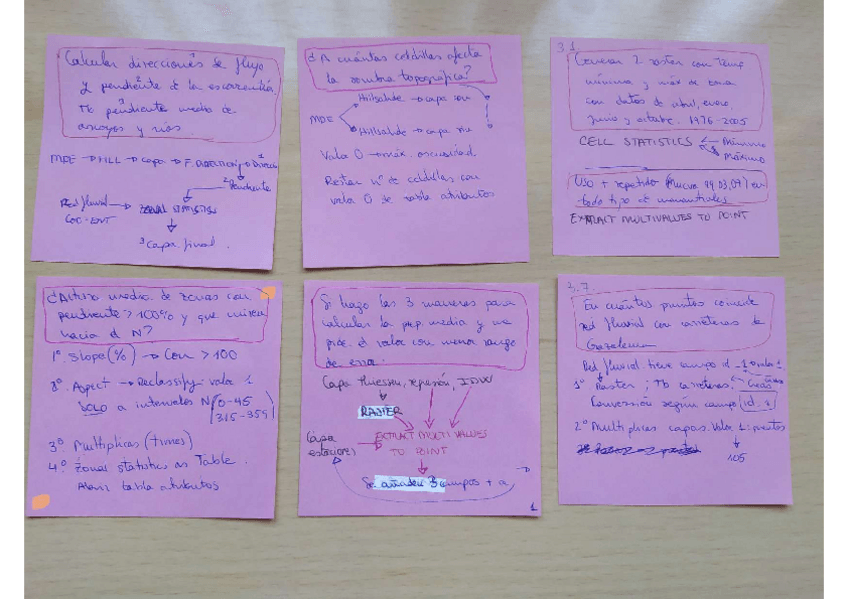 Calcular direcciones de flujo
y pendiente de la escorrentía.
Tb pendiente media de
arroyos y ríos.
MDE → FILL → capa → F. DIRECTION → Direcc
Pendiente
Red fluvial → ZONAL STATISTICS
Capa final.
¿A cuántas celdillas afecta
la sombra topográfica?
Hillshade → capa
MDE
Hillshade → capa
Valor 0 → máx. oscuridad
Restar nº de celdillas con
valor 0 de tabla atributos
3.1.
Generar 2 raster con Temp
mínima y máx de zona
con datos de abril, enero,
junio y octubre. 1976-2005
CELL STATISTICS
Mínimo
Máximo
Uso + repetido en
todo tipo de manantiales
EXTRACT MULTIVALUES TO POINT
¿Altura media de zonas con
pendiente > 100% y que miren
hacia el N?
1º. Slope (%) → Con > 100
2º. Aspect → Reclassify valor 1
SOLO a intervalos N 0-45
315-359
3º. Multiplicas (times)
4º. Zonal statistics as Table.
Abrir tabla atributos
Si hago las 3 maneras para
calcular la prep. media y me
pide el valor con menor rango
de error.
Capa thiessen, regresión, IDW
RASTER
Capa
estaciones
EXTRACT MULTIVALUES
TO POINT
Se añaden 3 campos + a
1
3.7.
En cuántos puntos coincide
red fluvial con carreteras de
Grazalema
Red fluvial tiene campo id
1º Raster; Tb carreteras
Conversión según campo id
2º Multiplicas capas. Valor 1: puntos
105